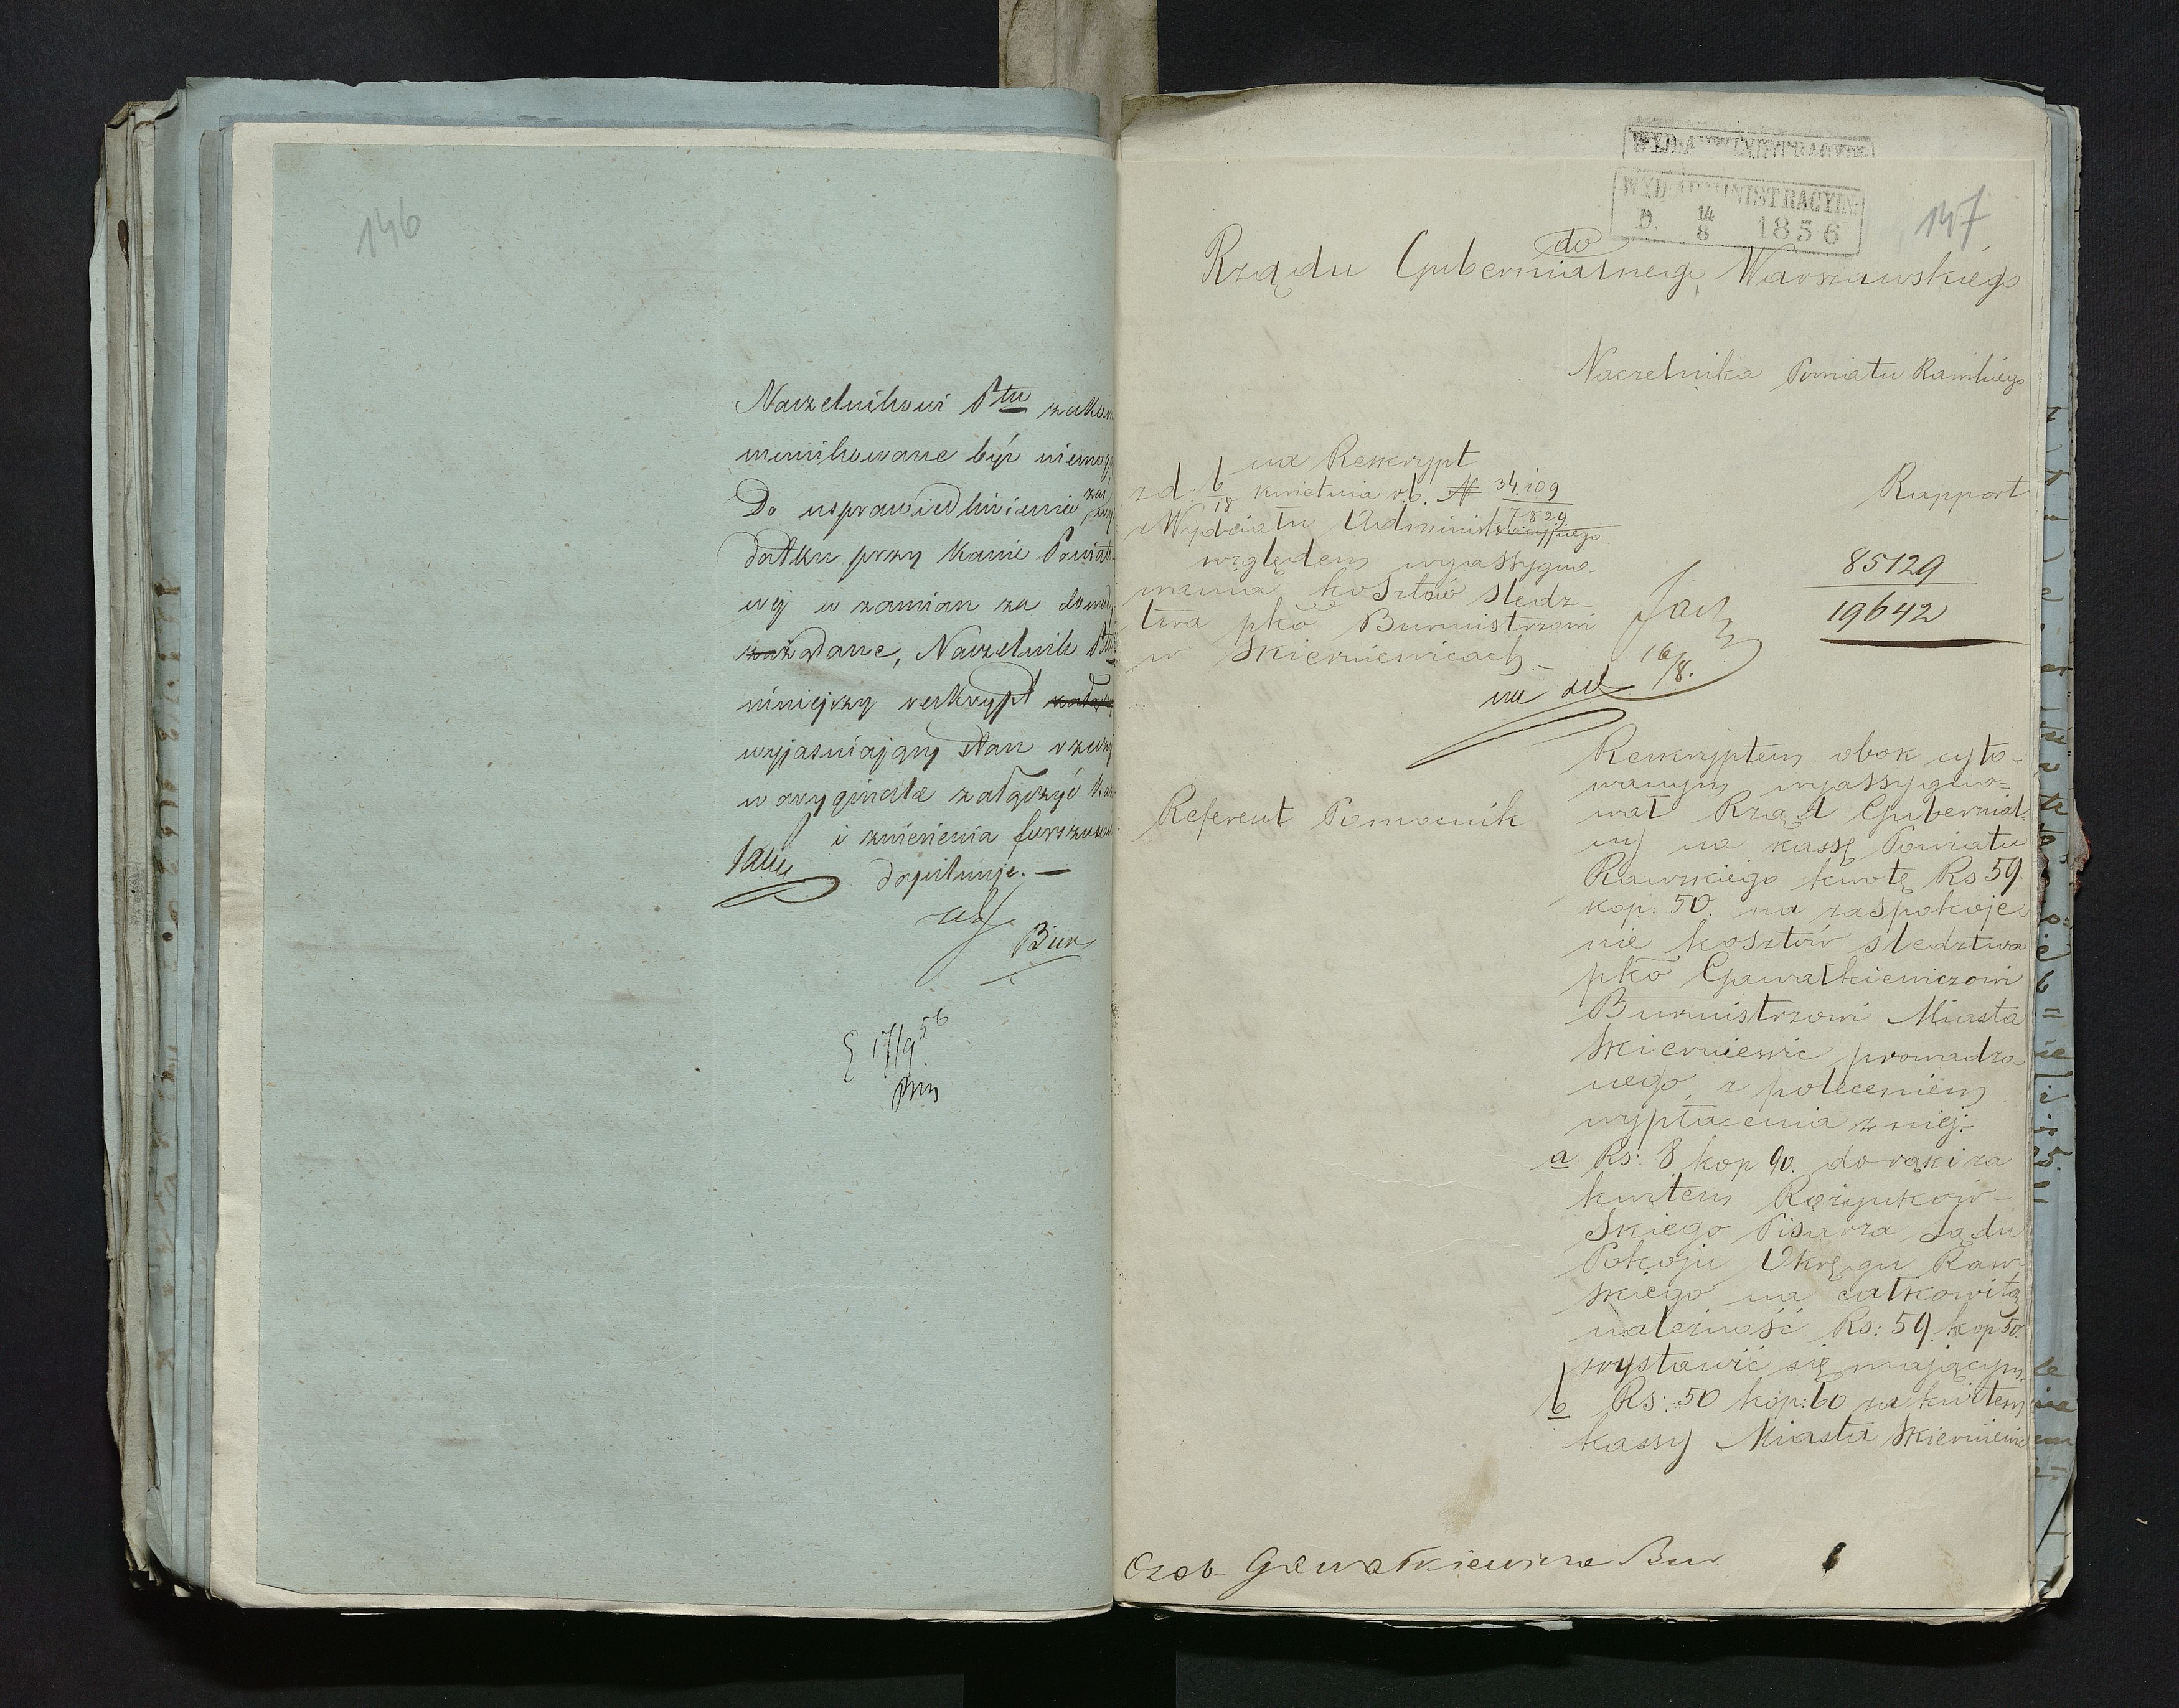 146
Naczelnikowi Ptu zakom
munikowane być niemogą
Do usprawiedliwienia zaś
datku przy Kasie Powiato
wej w zamian za dowody
żądane, Naczelnik Ptu
niniejszy reskrypt
wyjaśniający stan rzeczy
w oryginale załączyć ka
i zniesienia forszusu
dopilnuje. —
Bur
17/9 56
WYD. ADMINISTRACYJN:
WYD. ADMINISTRACYJN:
D. 14/8 1856
147
do
Rządu Gubernialnego Warszawskiego
Naczelnika Powiatu Rawskiego
na Reskrypt
z d. 6/18 kwietnia r.b. N 34.109/7829
z Wydziału Administracyjnego
względem wyassygno-
wania kosztów śledz-
twa pko Burmistrzowi
w Skierniewicach.-
Rapport
85129
19642
16/8.
Reskryptem obok cyto-
wanym wyassygno=
wał Rząd Gubernial:
ny na kassę Powiatu
Rawskiego kwotę Rs 59.
kop: 50. na zaspokoje
nie kosztów śledztwa
pko Gawałkiewiczowi
Burmistrzowi Miasta
Skierniewic prowadzo
nego, z poleceniem
wypłacenia z niej:
a Rs: 8 kop 90. do rąk i za
kwitem Rożynkow-
skiego Pisarza Sądu
Pokoju Okręgu Raw-
skiego na całkowitą
należność Rs: 59. kop 50
wystawić się mającym.
b Rs: 50 kop: 60 za kwitem
kassy Miasta Skierniewic
Referent Pomocnik
Osob- Gawałkiewicza Bur.